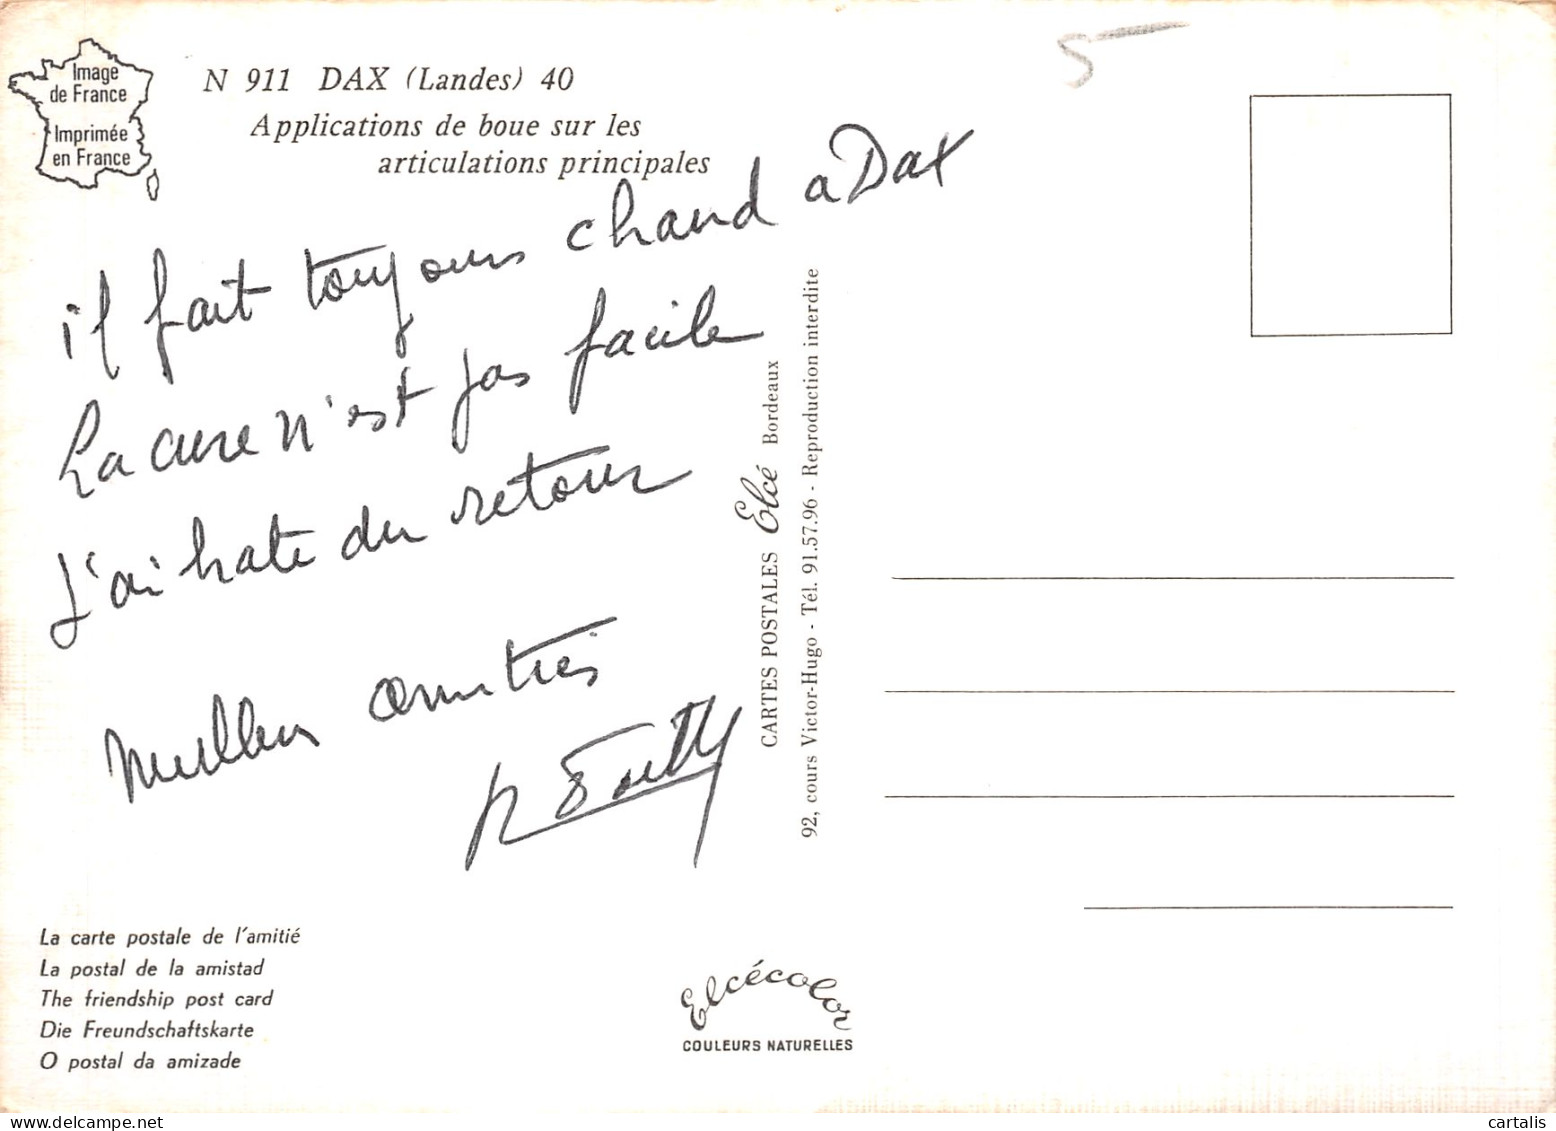 Image
de France
Imprimée
en France
N 911 DAX (Landes) 40
Applications de boue sur les
articulations principales
5
il fait toujours chaud a Dax
La cure n'est pas facile
J'ai hate du retour
Meilleures amitiés
CARTES POSTALES Elcé Bordeaux
92, cours Victor-Hugo - Tél. 91.57.96 - Reproduction interdite
La carte postale de l'amitié
La postal de la amistad
The friendship post card
Die Freundschaftskarte
O postal da amizade
Elcécolor
COULEURS NATURELLES
cartalis